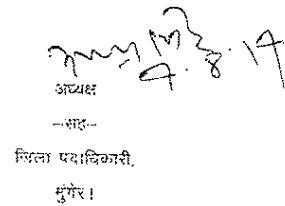 9.8.14
अध्यक्ष
-सह-
जिला पदाधिकारी,
मुंगेर।